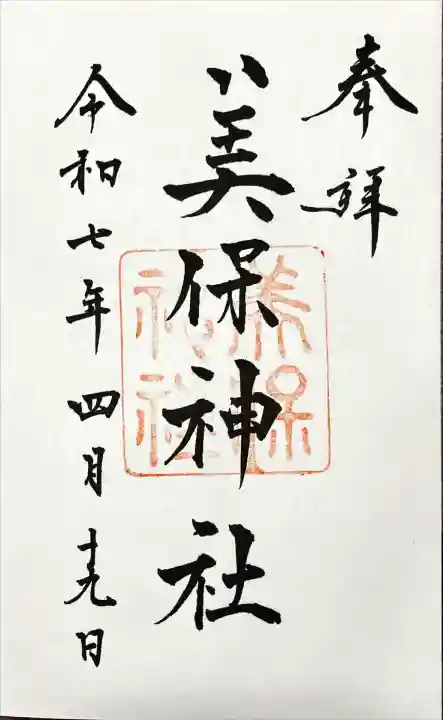 奉拜
美保神社
美保
神社
令和七年四月十九日